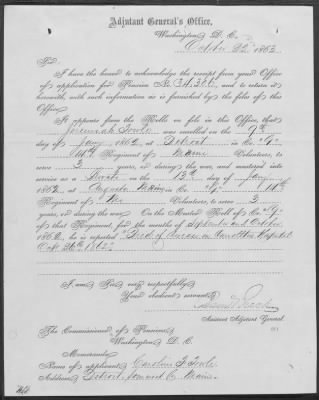 Adjutant General's Office,
Washington, D. C.
October 22d 1863
Sir:
I have the honor to acknowledge the receipt from your Office
of application for Pension No. 34,300, and to return it
herewith, with such information as is furnished by the files of this
Office.
It appears from the Rolls on file in this Office, that
Jeremiah Towle was enrolled on the 9th
day of Jany 1862, at Detroit in Co. "G"
11th Regiment of Maine Volunteers, to
serve 3 years, or during the war, and mustered into
service as a Private on the 13th day of Jany
1862, at Augusta Maine in Co. "G" 11th
Regiment of Me Volunteers, to serve 3
years, or during the war. On the Muster Roll of Co. "G"
of that Regiment, for the months of September and October
1862, he is reported "Died of Disease in Hospital
Oct 26th 1862"
I am, Sir, very respectfully,
Your obedient servant,
Assistant Adjutant General.
The Commissioner of Pensions,
Washington, D. C.
Memoranda:
Name of applicant, Caroline F. Towle
Address, Detroit, Somerset Co. Maine.